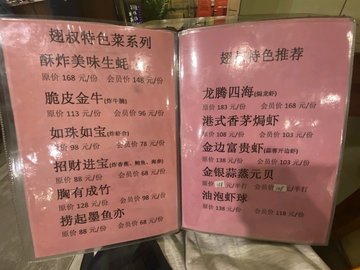 翅叔特色菜系列
酥炸美味生蚝
原价 168 元/份 会员价 148 元/份
脆皮金牛(炸牛腩)
原价 113 元/份 会员价 96 元/份
如珠如宝(炸虾合)
原价 98 元/份 会员价 78 元/份
招财进宝(炸香蕉、鲍鱼、海参)
原价 88 元/份 会员价 68 元/份
胸有成竹
原价 128 元/份 会员价 98 元/份
捞起墨鱼亦
原价 88 元/份 会员价 68 元/份
翅叔特色推荐
龙腾四海(焗龙虾)
原价 183 元/份 会员价 168 元/份
港式香茅焗虾
原价 108 元/份 会员价 103 元/份
金边富贵虾(蒜蓉开边虾)
原价 138 元/份 会员价 103 元/份
金银蒜蒸元贝
原价 元/半打 会员价 元/半打
油泡虾球
原价 138 元/份 会员价 118 元/份